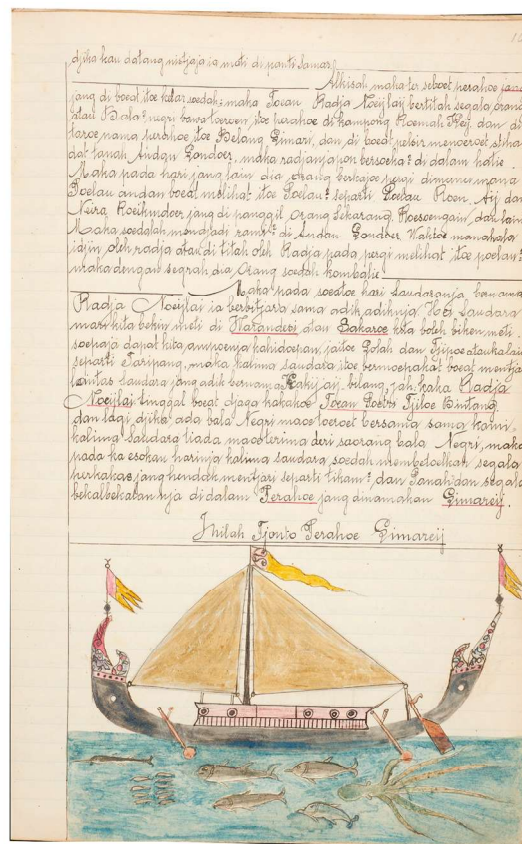 djika kau datang mentjaja ia mati di panti Samar
Alkisah maka ter seboet perahoe jang
jang di boeat itoe kaloear soedah; maka Toean Radja Noeijlaij bertitah segala orang
atau Bala² negri bawa toeroen, itoe perahoe di kampong Roemah Keij, dan di
taroe nama perahoe itoe Belang Gimari, dan di boeat pelsir menoeroet
dat tanah Andan Gondoer, maka radjanja pon bersoeka² di dalam hatie.
Maka pada hari jang lain dia orang berlajar pergi dimana mana
Poelau andan boeat melihat itoe Poelau² seperti Poelau Roen, Aij dan
Neira, jang di panggil Orang Sekarang, dan lain
Maka soedalah mendjadi ramé² di Andan Gondoer, Waktoe
idjin oleh radja atau di titah oleh Radja pada, pergi melihat itoe poelau²
maka dengan segrah dia Orang soedah kombalie
Maka pada soeatoe hari Saudaranja bernama
Radja Noeijlaij ia berbitjara sama adik adiknja Hei Saudara
mari kita bekin meti di Karandesi atau Bakaroe kita boleh bikin meti
soepaja dapat kita ampoenja kahidoepan, jaitoe Lolah dan Tjipoe ataukalau
seperti Taripang, maka kalima saudara itoe bermoehakat boeat mentja
lantas saudara jang adik bernama Kakijaij bilang, jah kaka Radja
Noeijlaij tinggal boeat djaga kakakoe Toean Poetri Tjiloe Bintang
dan lagi, djika ada bala Negri maoe toeroet bersama sama kami
kalima saudara tiada maoe terima deri saorang bala Negri, maka
pada ka esokan harinja kalima saudara, soedah membetoelkan segala
perkakas jang hendak mentjari seperti tikam², dan Panah dan segala
bekalbekalan nja di dalam Perahoe jang dinamakan Gimareij.
Inilah Tjonto Perahoe Gimareij